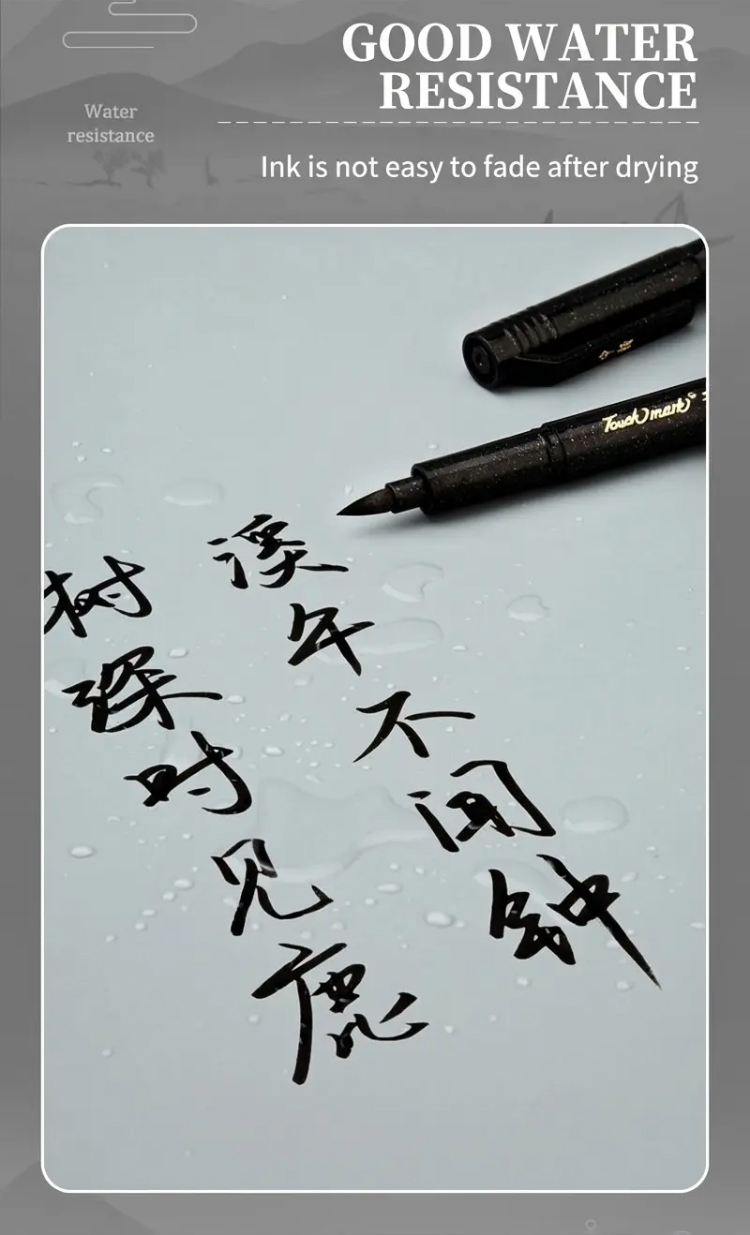 GOOD WATER
RESISTANCE
Water
resistance
Ink is not easy to fade after drying
Touch mark
树深时见鹿
溪午不闻钟